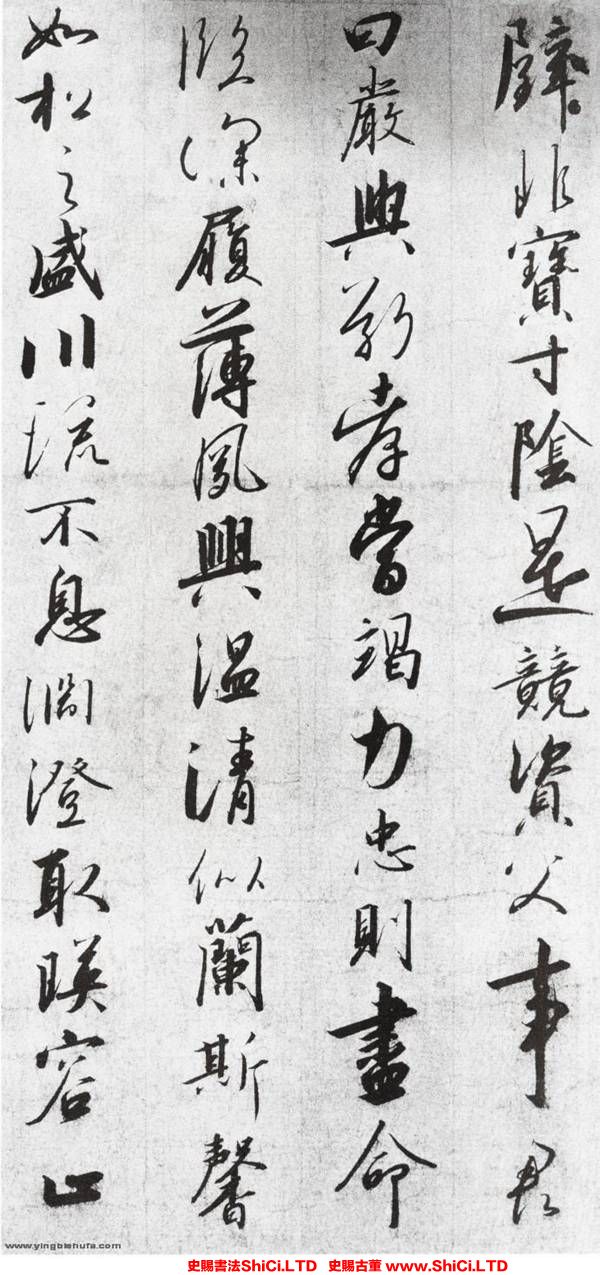 璧非寶寸陰是競資父事君
曰嚴與敬孝當竭力忠則盡命
臨深履薄夙興溫清似蘭斯馨
如松之盛川流不息淵澄取暎容止
www.yingbishufa.com
史賜書法ShiCi.LTD 史賜古董 www.ShiCi.LTD